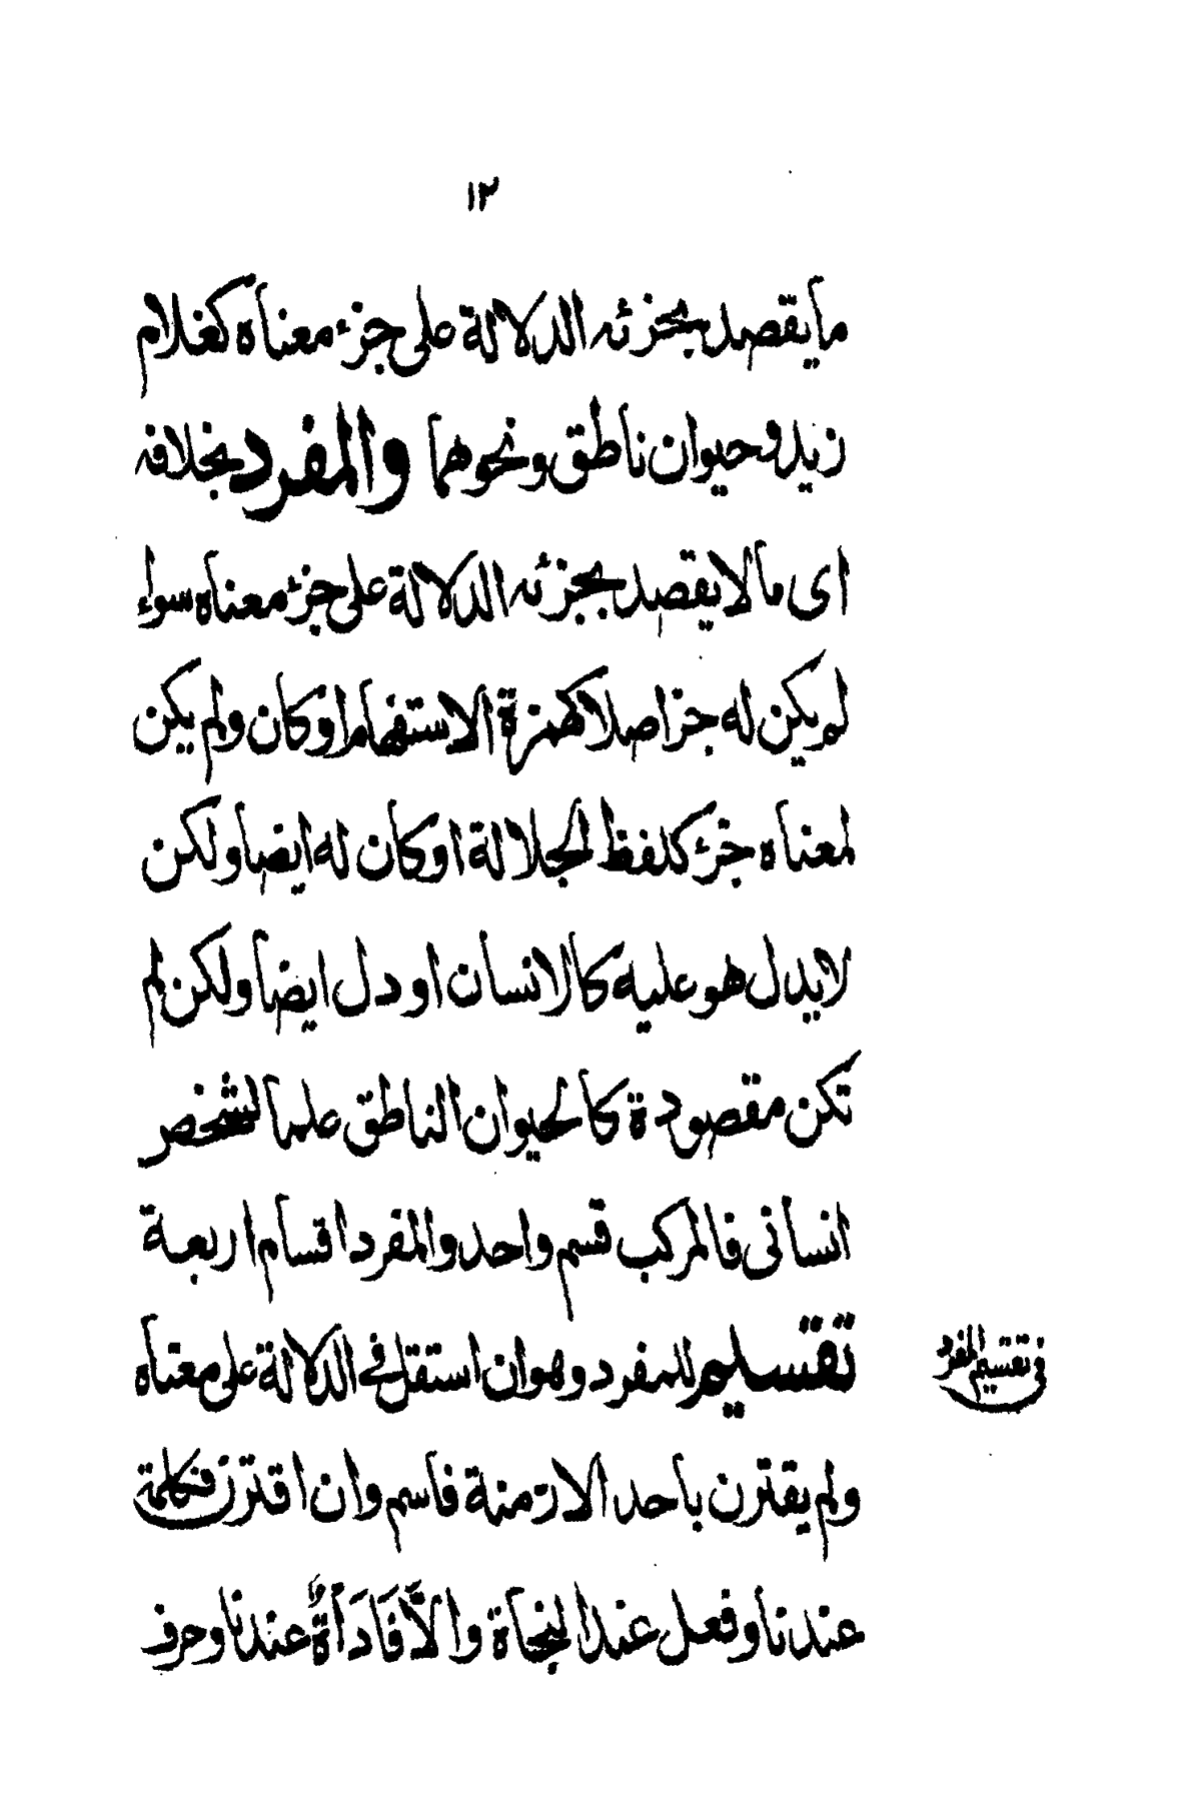 ١٣
ما يقصد بجزئه الدلالة على جزء معناه كغلام
زيد وحيوان ناطق ونحوهما والمفرد بخلافه
اى ما لا يقصد بجزئه الدلالة على جزء معناه سواء
لم يكن له جزء اصلا كهمزة الاستفهام او كان ولم يكن
لمعناه جزء كلفظ الجلالة او كان له ايضا ولكن
لا يدل هو عليه كالانسان او دل ايضا ولكن لم
تكن مقصودة كالحيوان الناطق علما لشخص
انسانى فالمركب قسم واحد والمفرد اقسام اربعة
تقسيم للمفرد وهو ان استقل في الدلالة على معناه
في تقسيم المفرد
ولم يقترن باحد الازمنة فاسم وان اقترن فكلمة
عندنا وفعل عند النحاة والّا فَادَاةٌ عندنا وحرف